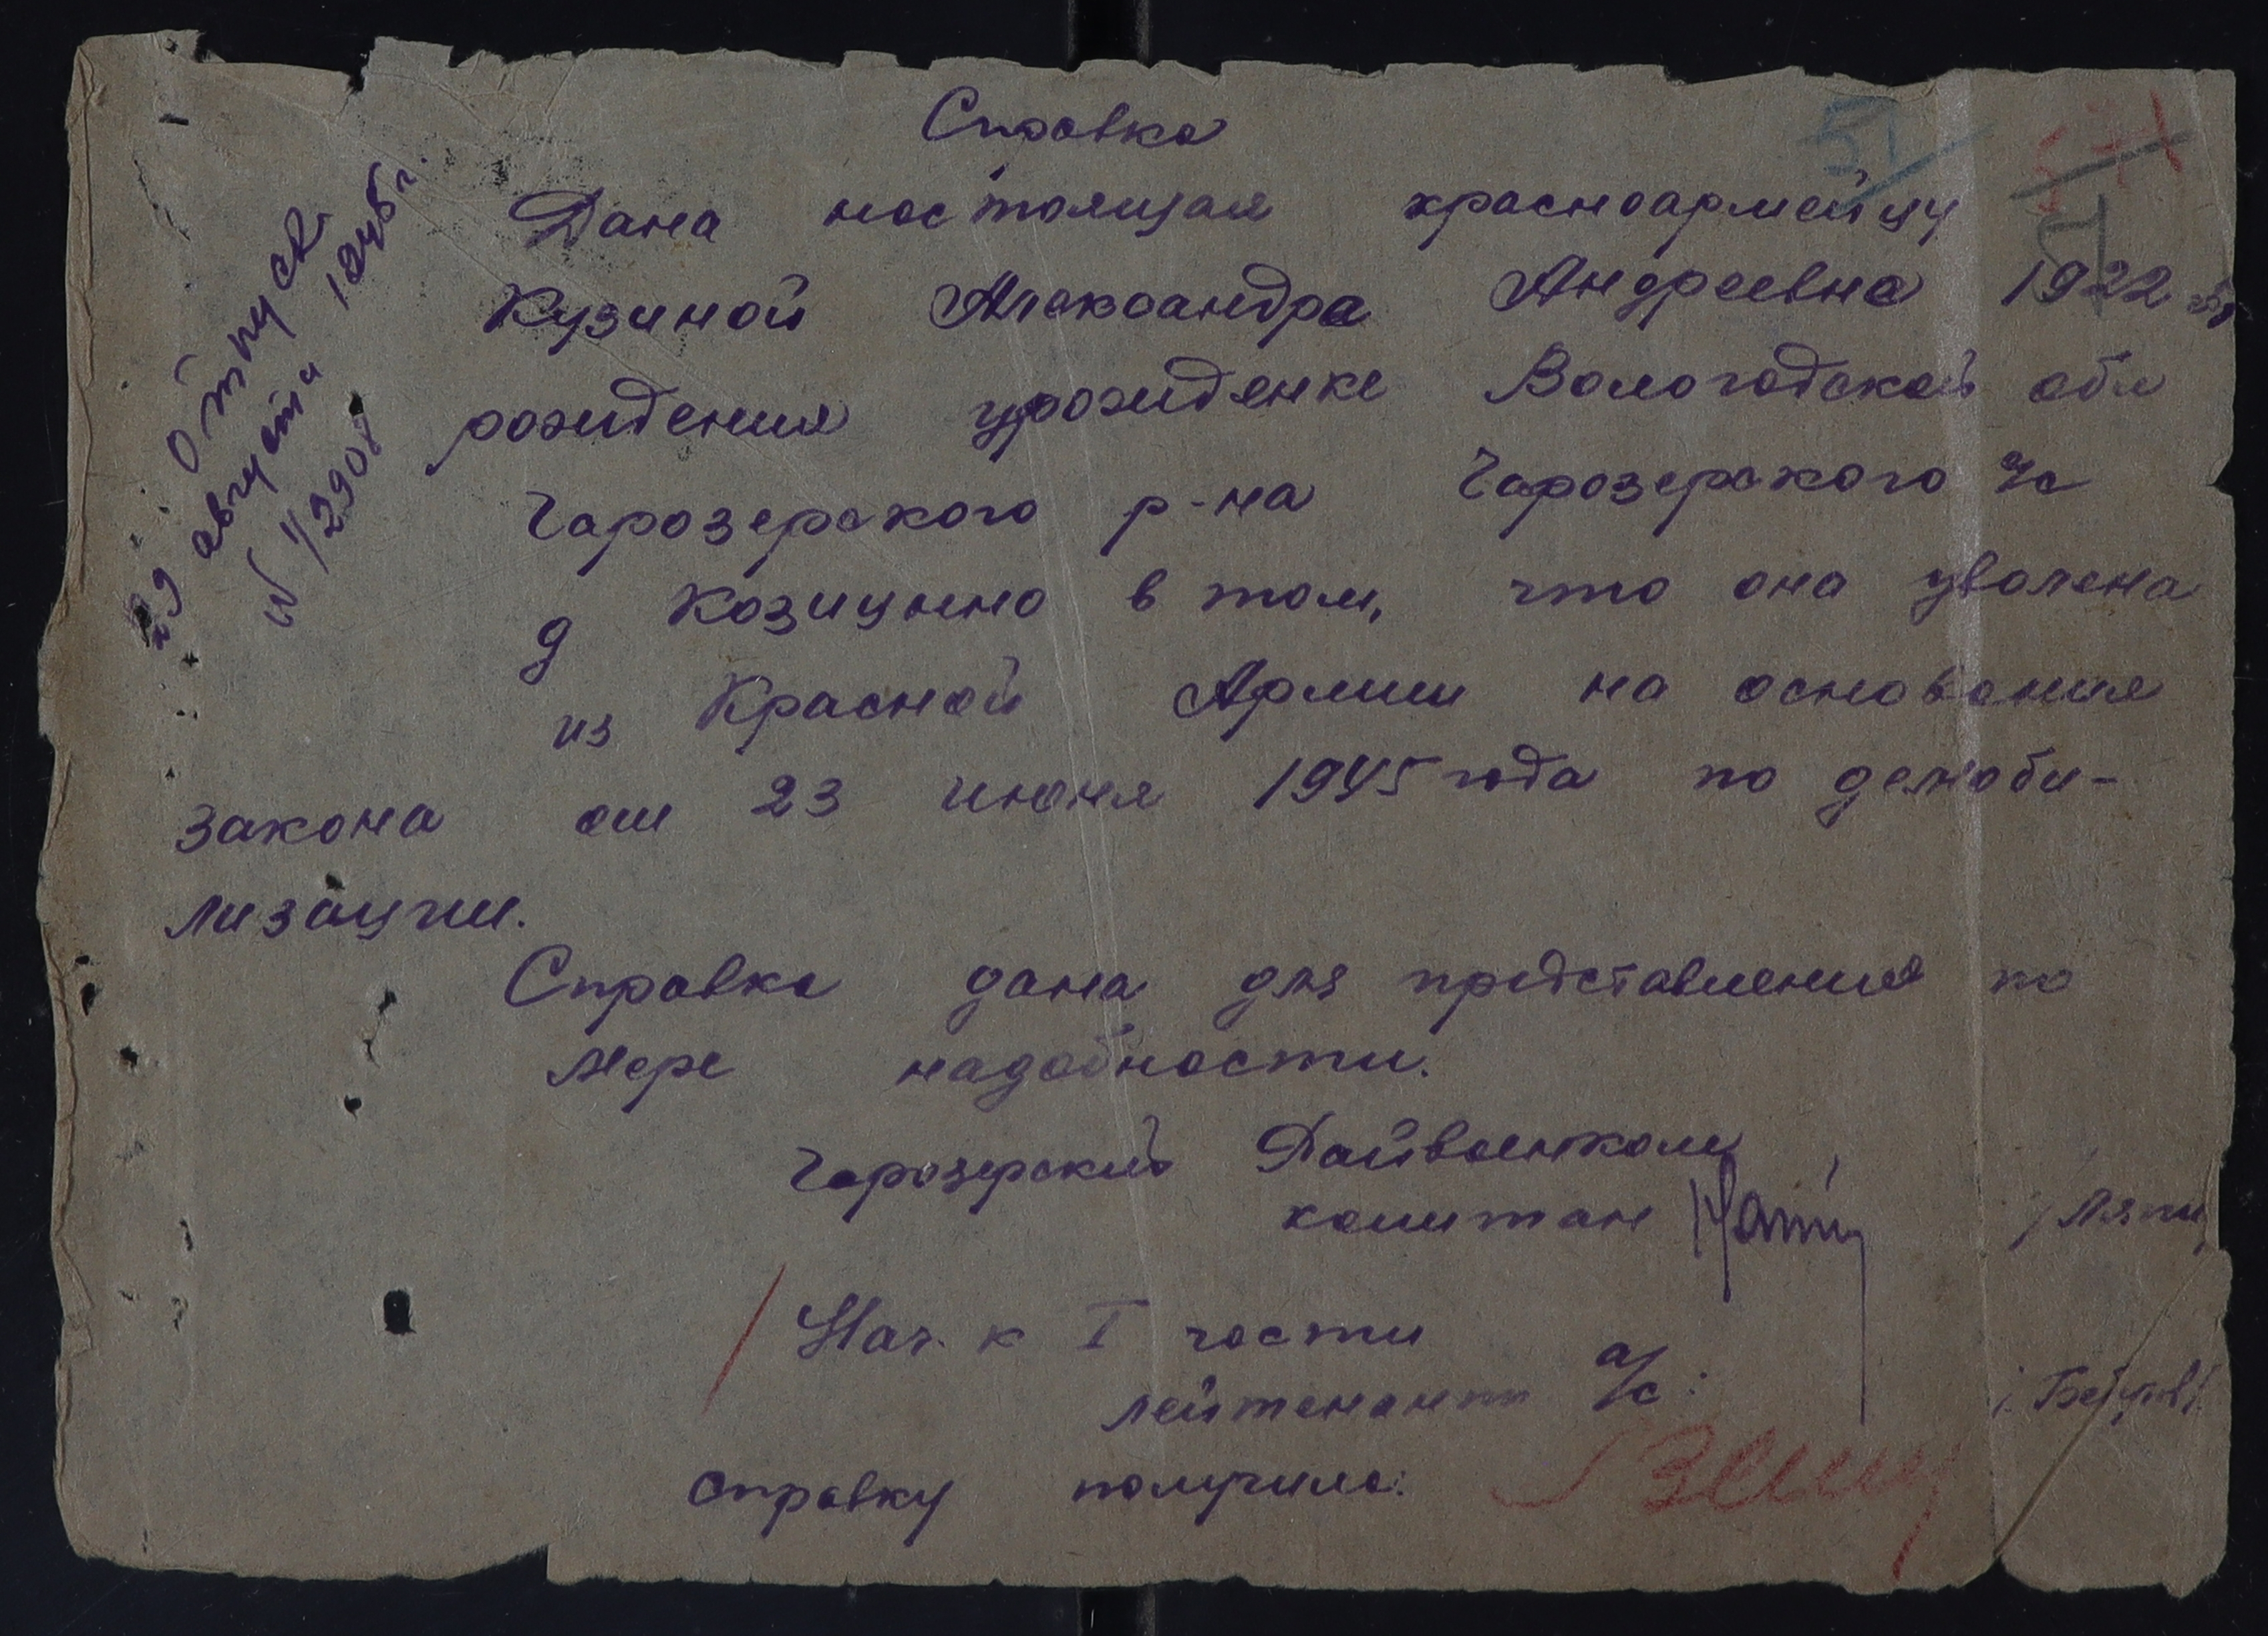 Справка
51
Отпуск
29 августа 1945 г.
№ 1/2908
Дана настоящая красноармейцу
Кузиной Александра Андреевна 1922 г.
рождения урожденке Вологодской обл
Чарозерского р-на Чарозерского с/с
д Козицыно в том, что она уволена
из Красной Армии на основания
закона от 23 июня 1945 года по демоби-
лизации.
Справка дана для представления по
мере надобности.
Чарозерский Райвоенком
капитан /Ляпи
Нач. к I части
лейтенант а/с:
справку получила: